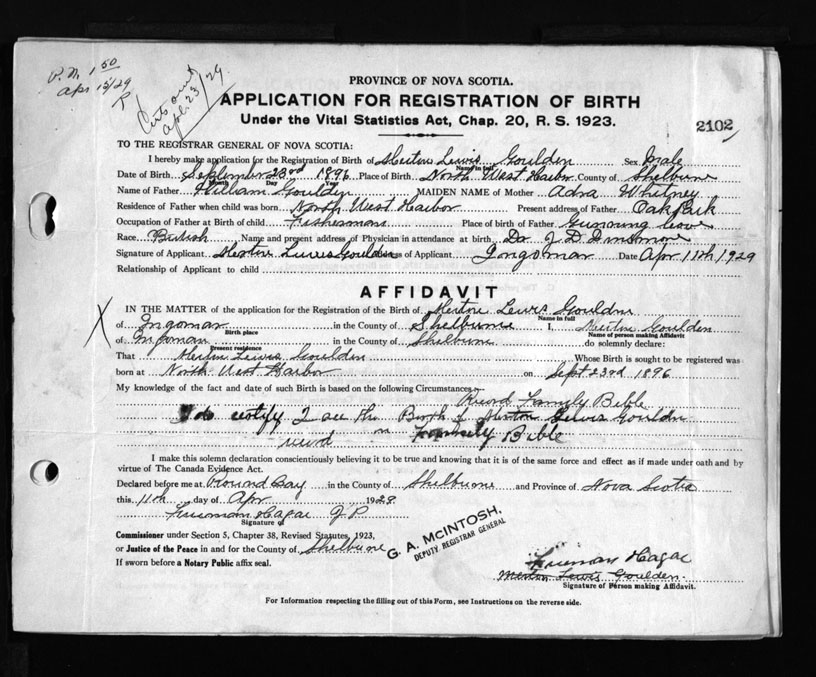 P.N. 1 50
Apr 15/29
Cert out
Apl. 23/29
PROVINCE OF NOVA SCOTIA.
APPLICATION FOR REGISTRATION OF BIRTH
Under the Vital Statistics Act, Chap. 20, R. S. 1923.
2102
TO THE REGISTRAR GENERAL OF NOVA SCOTIA:
I hereby make application for the Registration of Birth of Merton Lewis Goulden Sex Male
Name in full
Date of Birth September 23rd 1896 Place of Birth North West Harbor County of Shelburne
Month Day Year
Name of Father William Goulden MAIDEN NAME of Mother Adra Whitney
Residence of Father when child was born North West Harbor Present address of Father Oak Park
Occupation of Father at Birth of child Fisherman Place of birth of Father Gunning Cove
Race British Name and present address of Physician in attendance at birth Dr J. D. Dinsmore
Signature of Applicant Merton Lewis Goulden Address of Applicant Ingomar Date Apr 11th 1929
Relationship of Applicant to child
AFFIDAVIT
IN THE MATTER of the application for the Registration of the Birth of Merton Lewis Goulden
Name in full
X
of Ingomar in the County of Shelburne I, Merton Goulden
Birth place Name of person making Affidavit
of Ingomar in the County of Shelburne do solemnly declare:
Present residence
That Merton Lewis Goulden Whose Birth is sought to be registered was
born at North West Harbor on Sept 23rd 1896
My knowledge of the fact and date of such Birth is based on the following Circumstances
Record Family Bible
I do certify I see the Birth of Merton Lewis Goulden
record in Family Bible
I make this solemn declaration conscientiously believing it to be true and knowing that it is of the same force and effect as if made under oath and by
virtue of The Canada Evidence Act.
Declared before me at Round Bay in the County of Shelburne and Province of Nova Scotia
this 11th day of Apr 1929
Freeman Hagar J P
Signature of
Commissioner under Section 5, Chapter 38, Revised Statutes, 1923,
or Justice of the Peace in and for the County of Shelburne
If sworn before a Notary Public affix seal.
G. A. McINTOSH,
DEPUTY REGISTRAR GENERAL
Freeman Hagar
Merton Lewis Goulden
Signature of Person making Affidavit.
For Information respecting the filling out of this Form, see Instructions on the reverse side.